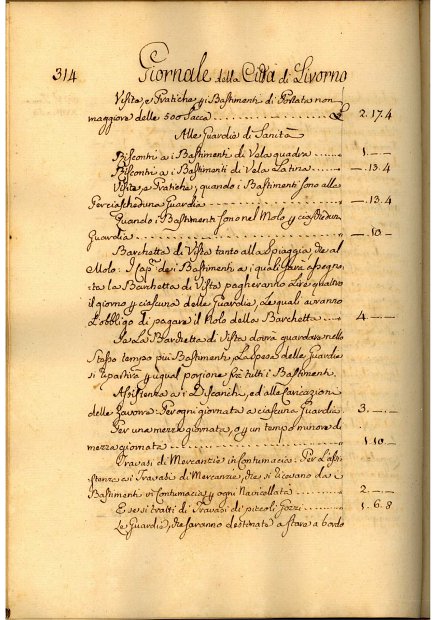 314 Giornale della Città di Livorno
Visite, e Pratiche p i Bastimenti di Portata non
maggiore delle 500 Sacca ........ £ 2.17.4
Alle Guardie di Sanità
Riscontri a i Bastimenti di Vela quadra ........ 1.—.—
Riscontri a i Bastimenti di Vela Latina ........ —.13.4
Visite, e Pratiche, quando i Bastimenti sono alla
Per ciascheduna Guardia ........ —.13.4
Quando i Bastimenti sono nel Molo p ciascheduna
Guardia ........ —.10.—
Barchetta di Vista tanto alla Spiaggia, che al
Molo: I Cap.ⁿⁱ de i Bastimenti a i quali sarà assegna-
ta la Barchetta di Vista pagheranno Lire quattro
il giorno p ciascuna delle Guardie, Le quali avranno
L'obbligo di pagare il Nolo della Barchetta .... 4.—.—
Se La Barchetta di Vista dovrà guardare nello
Stesso tempo più Bastimenti, La Spesa delle Guardie
si ripartirà p ugual porzione frà tutti i Bastimenti.
Assistenza a i Discarichi, ed alle Caricazioni
delle Zavorre. Per ogni giornata a ciascuna Guardia 3.—.—
Per una mezza giornata, o p un tempo minore di
mezza giornata ........ 1.10.—
Travasi di Mercanzie in Contumacia: Per L'assi-
stenza a i Travasi di Mercanzie, che si ricevano da i
Bastimenti in Contumacia p ogni Navicellata ...... 2.—.—
E se si tratti di Travasi di piccoli Gozzi ...... 1.6.8
Le Guardie, che saranno destinate a stare a bordo